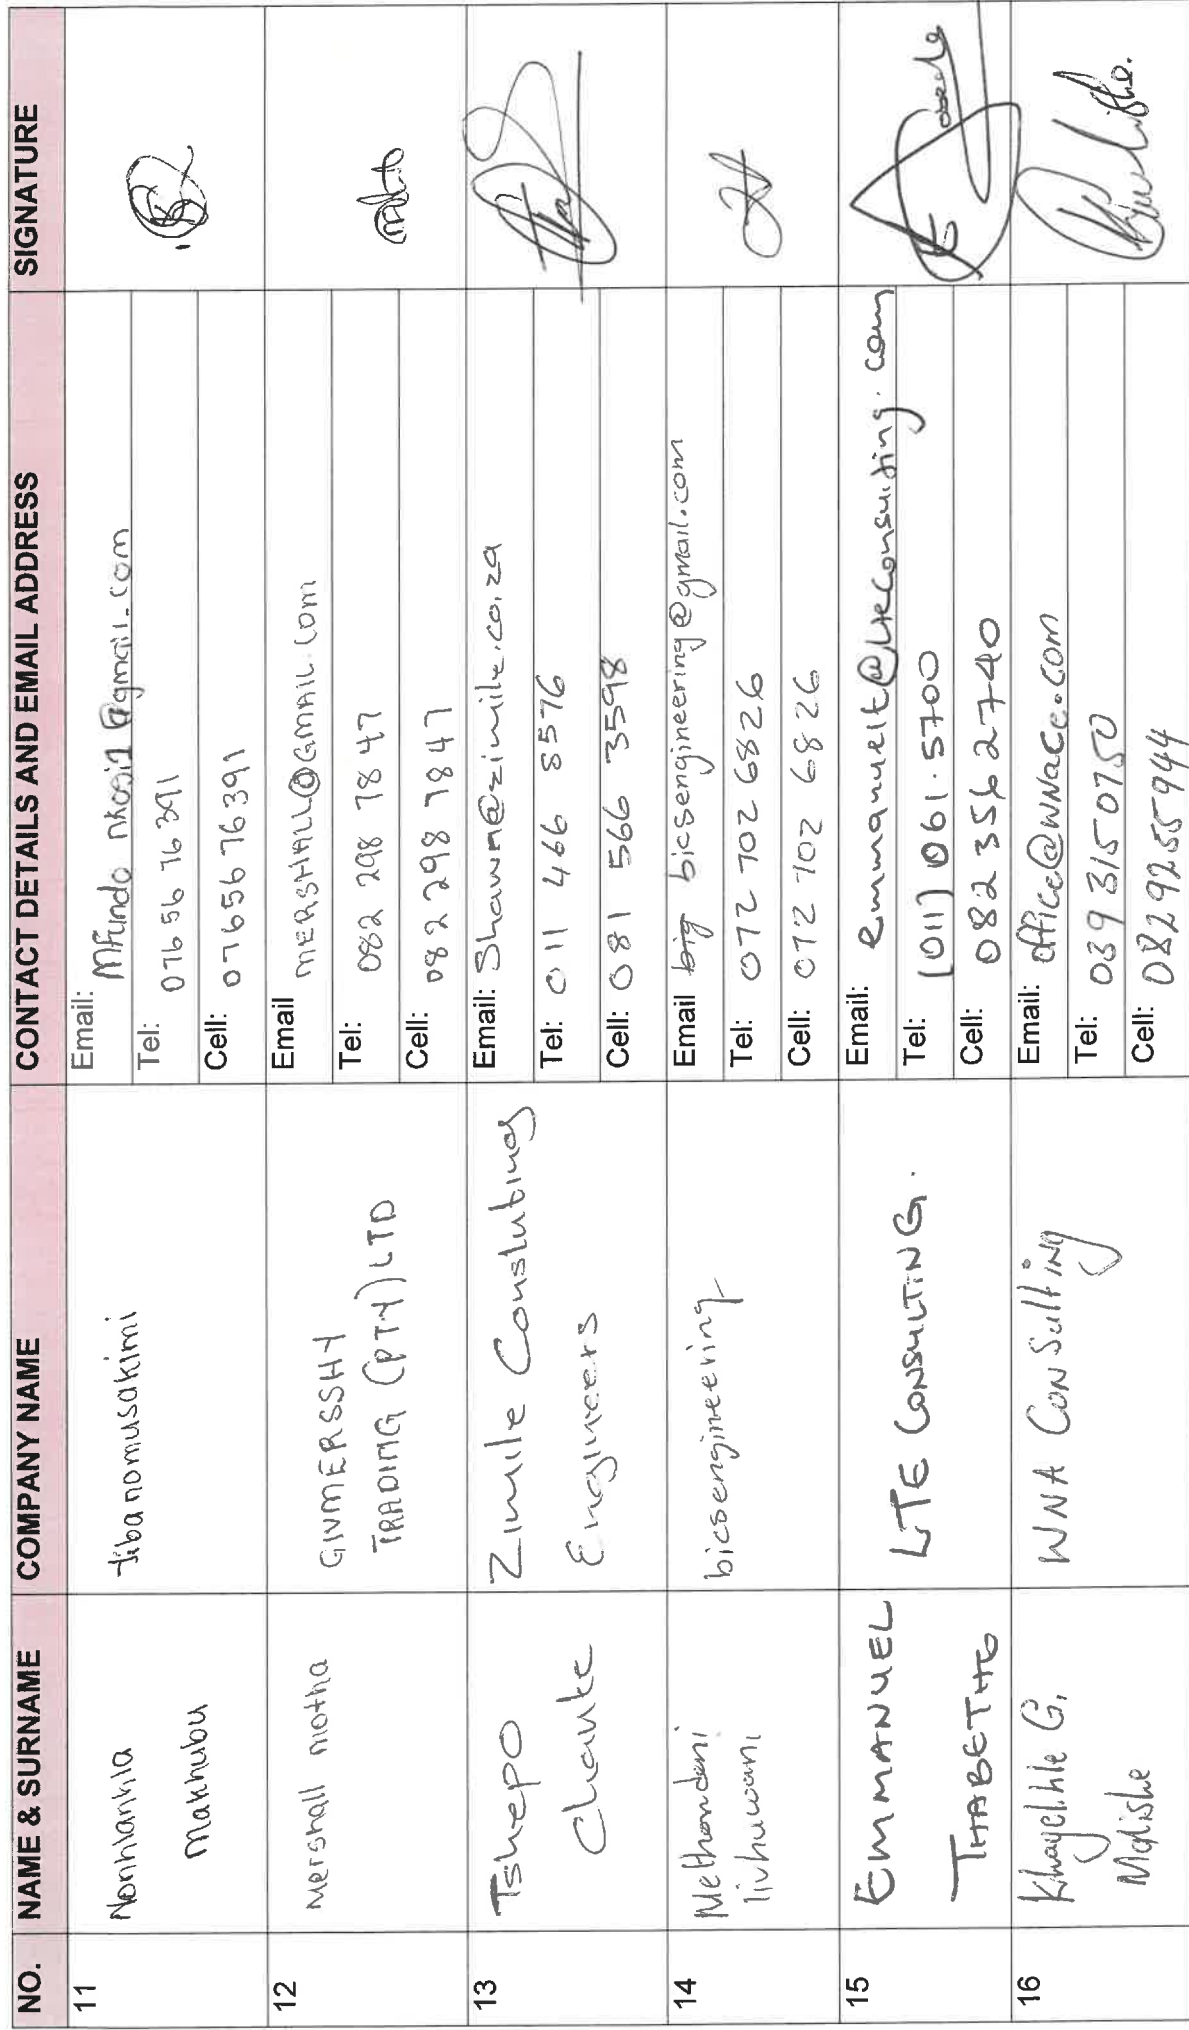 NO. NAME & SURNAME COMPANY NAME CONTACT DETAILS AND EMAIL ADDRESS SIGNATURE
11 Nonhlanhla Makhubu
Jibanomusakimi
Email: Mfundo nkosi1@gmail.com
Tel: 076 56 76 391
Cell: 07656 76 391
12 Mershall motha
GIVMERSSHY
TRADING (PTY) LTD
Email MERSHALL@GMAIL.COM
Tel: 082 298 7847
Cell: 082 298 7847
13 Tshepo
Chauke
Zimile Conslutings
Engineers
Email: Shawn@zimile.co.za
Tel: 011 466 8576
Cell: 081 566 3598
14 Methondeni
livhuwani
bicsengineering
Email bicsengineering@gmail.com
Tel: 072 702 6826
Cell: 072 702 6826
15 EMMANUEL
THABETHE
LTE CONSULTING.
Email: emmanuelt@LteConsulting.com
Tel: (011) 061.5700
Cell: 082 356 2740
16 Khayelihle G.
Malishe
WNA Consulting
Email: office@WNACE.COM
Tel: 039 315 0750
Cell: 0829255944